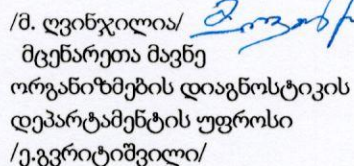 /მ. ღვინჯილია/
მცენარეთა მავნე
ორგანიზმების დიაგნოსტიკის
დეპარტამენტის უფროსი
/ე.გვრიტიშვილი/